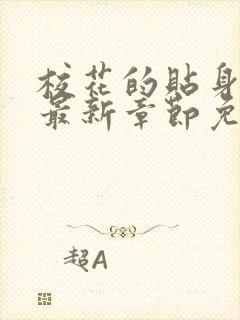 校花的贴身
最新章节免
超A